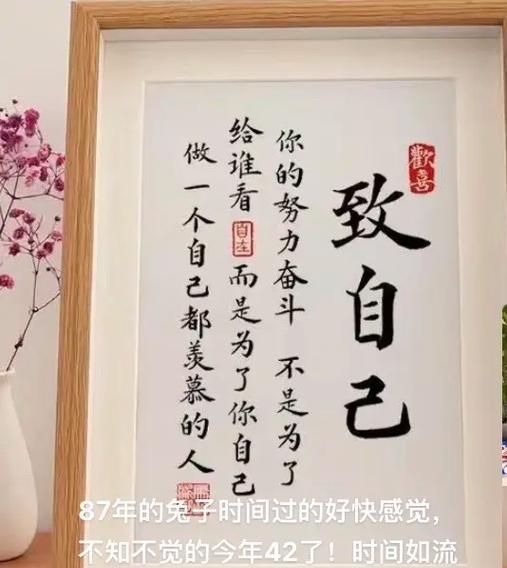 致自己
歡喜
你的努力奋斗 不是为了
给谁看 自在 而是为了你自己
做一个自己都羡慕的人
87年的兔子时间过的好快感觉，
不知不觉的今年42了！时间如流